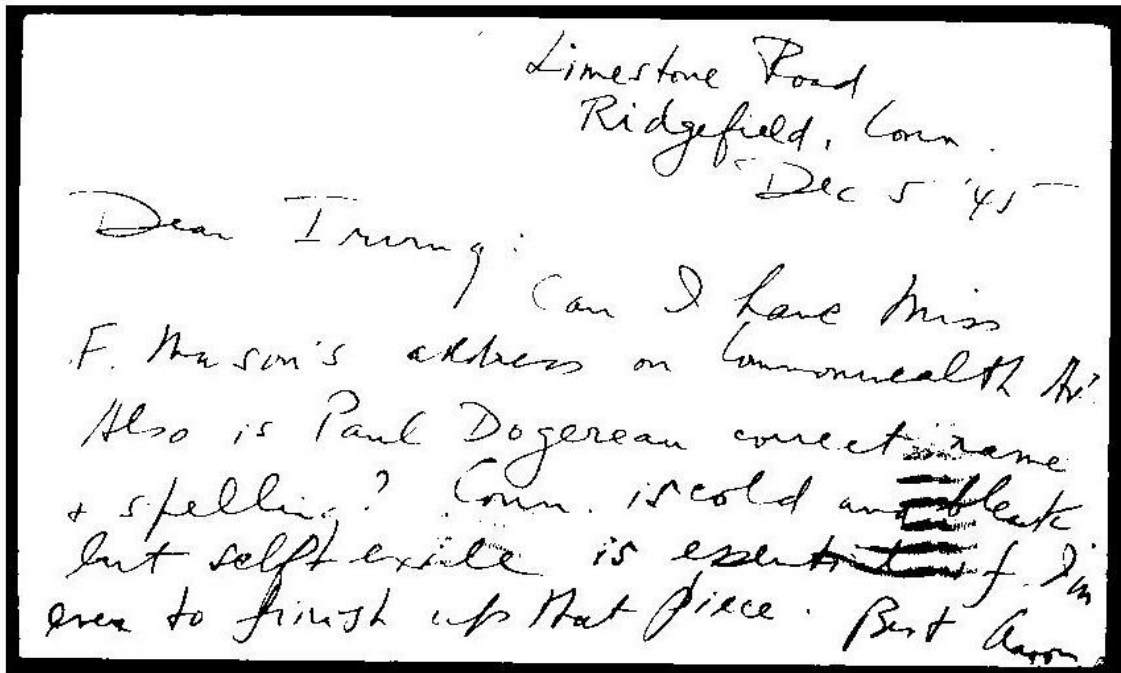 Limestone Road
Ridgefield, Conn.
Dec 5 '45
Dear Irving:
Can I have Miss
F. Mason's address on Commonwealth Av.
Also is Paul Dogereau correct name
& spelling? Conn. is cold and bleak
but self exile is essential if I'm
ever to finish up that piece. Best Aaron